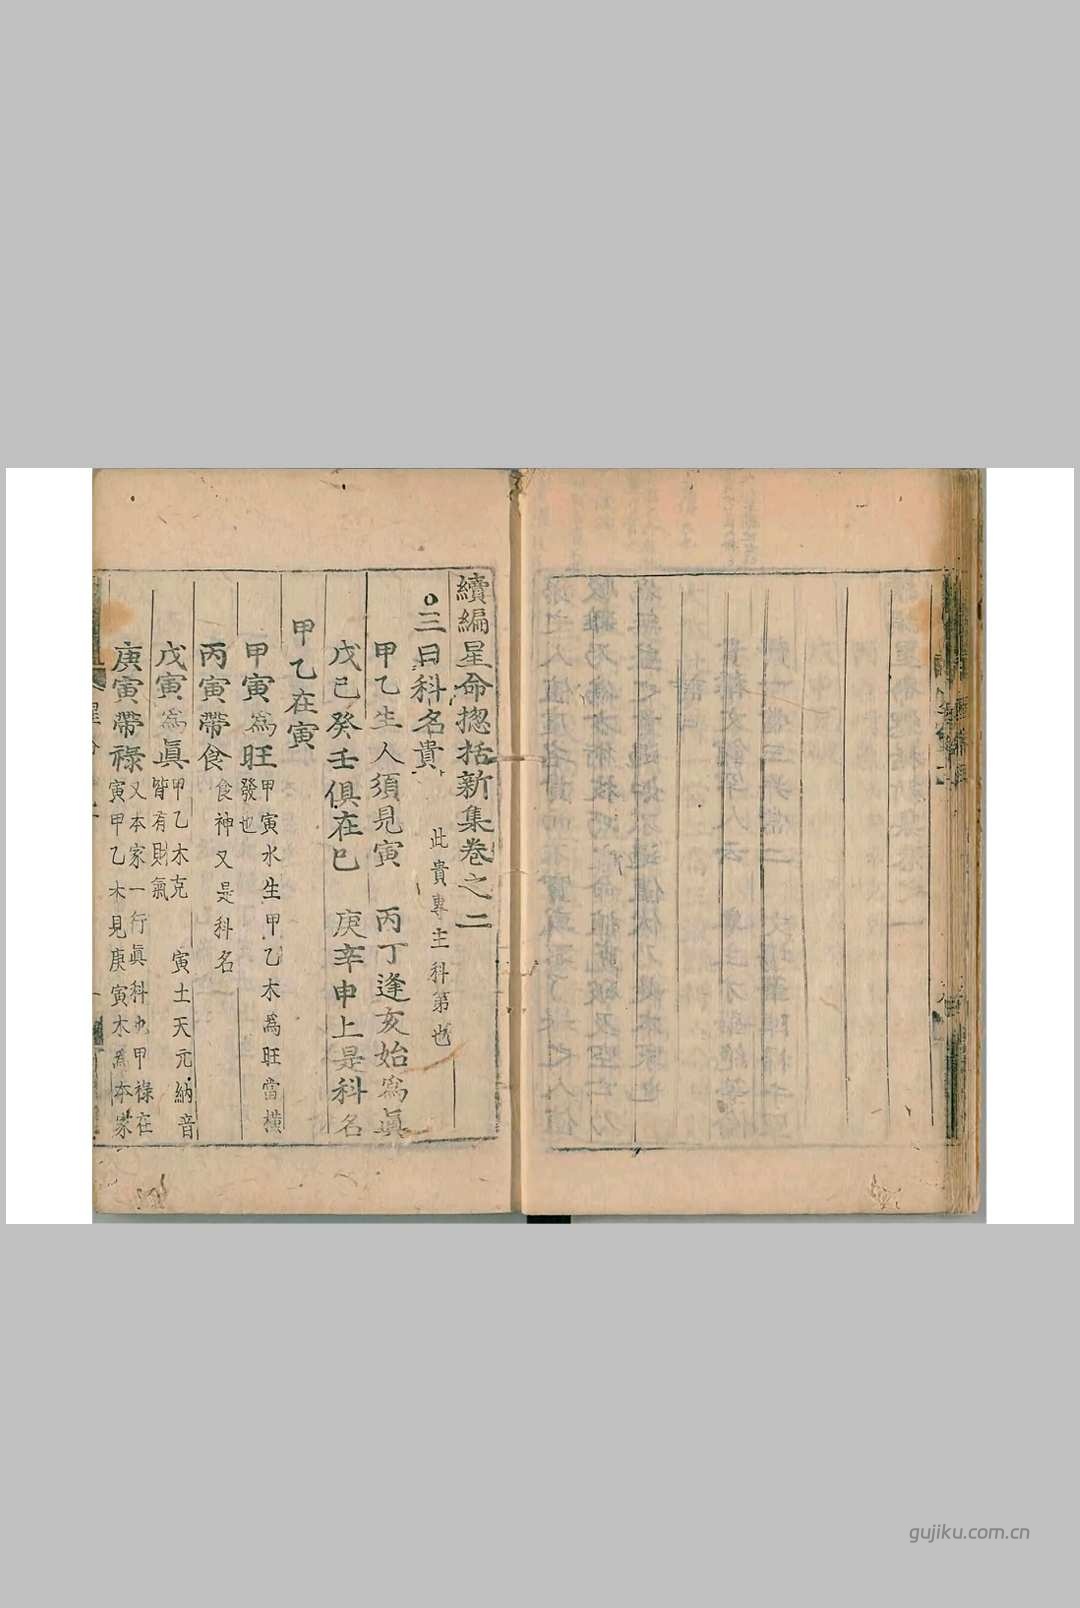 續編星命揔括新集卷之二
○三曰科名貴 此貴專主科第也
甲乙生人須見寅 丙丁逢亥始爲眞
戊己癸壬俱在巳 庚辛申上是科名
甲乙在寅
甲寅爲旺 甲寅水生甲乙木爲旺當橫
發也
丙寅帶食 食神又是科名
戊寅爲眞 甲乙木克 寅土天元納音
皆有財氣
庚寅帶祿 又本家一行眞科也甲祿在
寅甲乙木見庚寅木爲本家
gujiku.com.cn